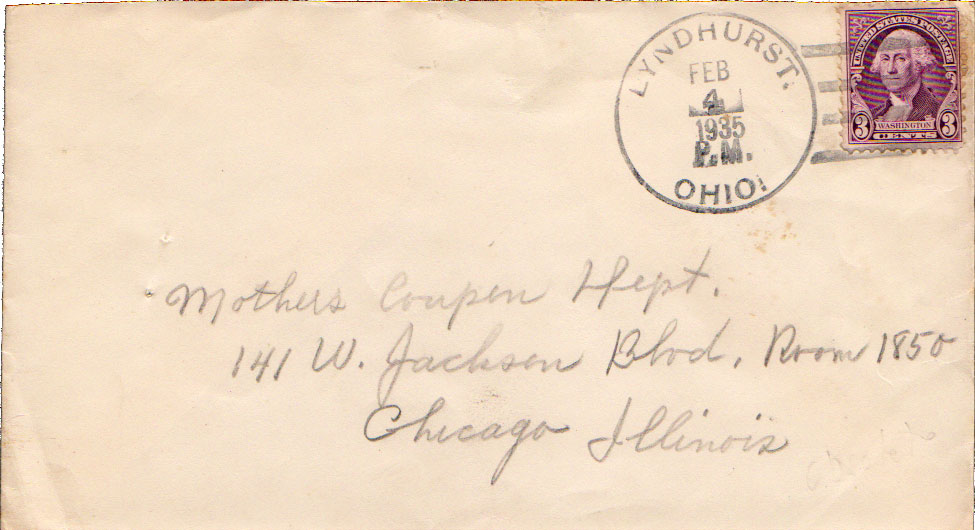 LYNDHURST.
FEB
4
1935
P.M.
OHIO.
UNITED STATES POSTAGE
3 WASHINGTON 3
CENTS
Mothers Coupen Dept.
141 W. Jackson Blvd, Room 1850
Chicago Illinois